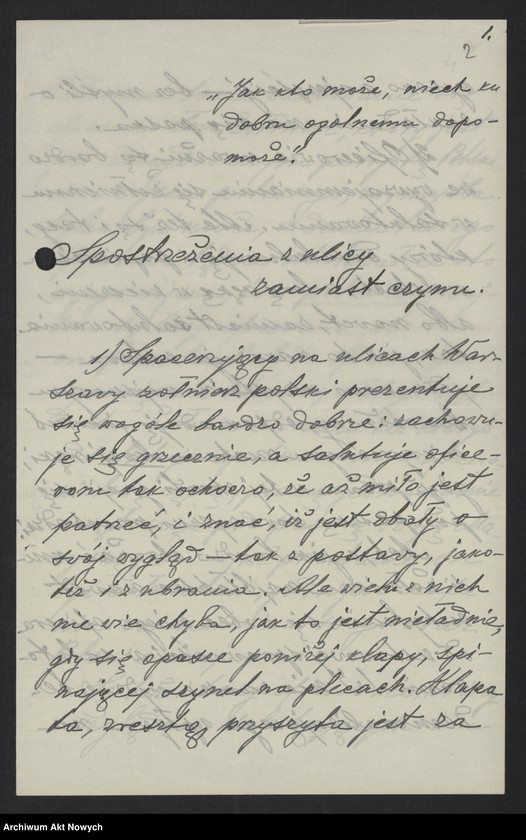 1.
2
„Jak kto może, niech ku
dobru ogólnemu dopo-
może".
Spostrzeżenia z ulicy
zamiast czynu.
1) Spacerujący na ulicach War-
szawy żołnierz polski prezentuje
się wogóle bardzo dobrze: zachowu-
je się grzecznie, a salutuje ofice-
rom tak ochoczo, że aż miło jest
patrzeć, i znać, iż jest dbały o
swój wygląd — tak z postawy, jako-
też i z ubrania. Ale wielu z nich
nie wie chyba, jak to jest nieładnie,
gdy się opasze poniżej klapy, spi-
nającej szynel na plecach. Klapa
ta, zresztą, przyszyta jest za
Archiwum Akt Nowych